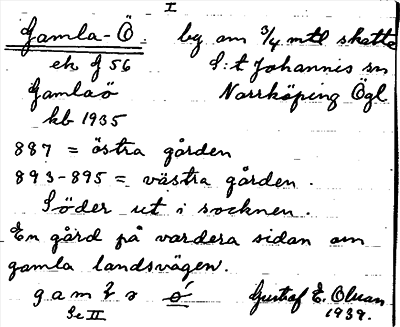 I
Gamla-Ö. by om 3/4 mtl skatte
ek f 56 S:t Johannis sn
Gamlaö Norrköping Ögl
kb 1935
887 = östra gården
893-895 = västra gården.
Söder ut i socknen.
En gård på vardera sidan om
gamla landsvägen.
Se II Gustaf E. Olsson
1939.